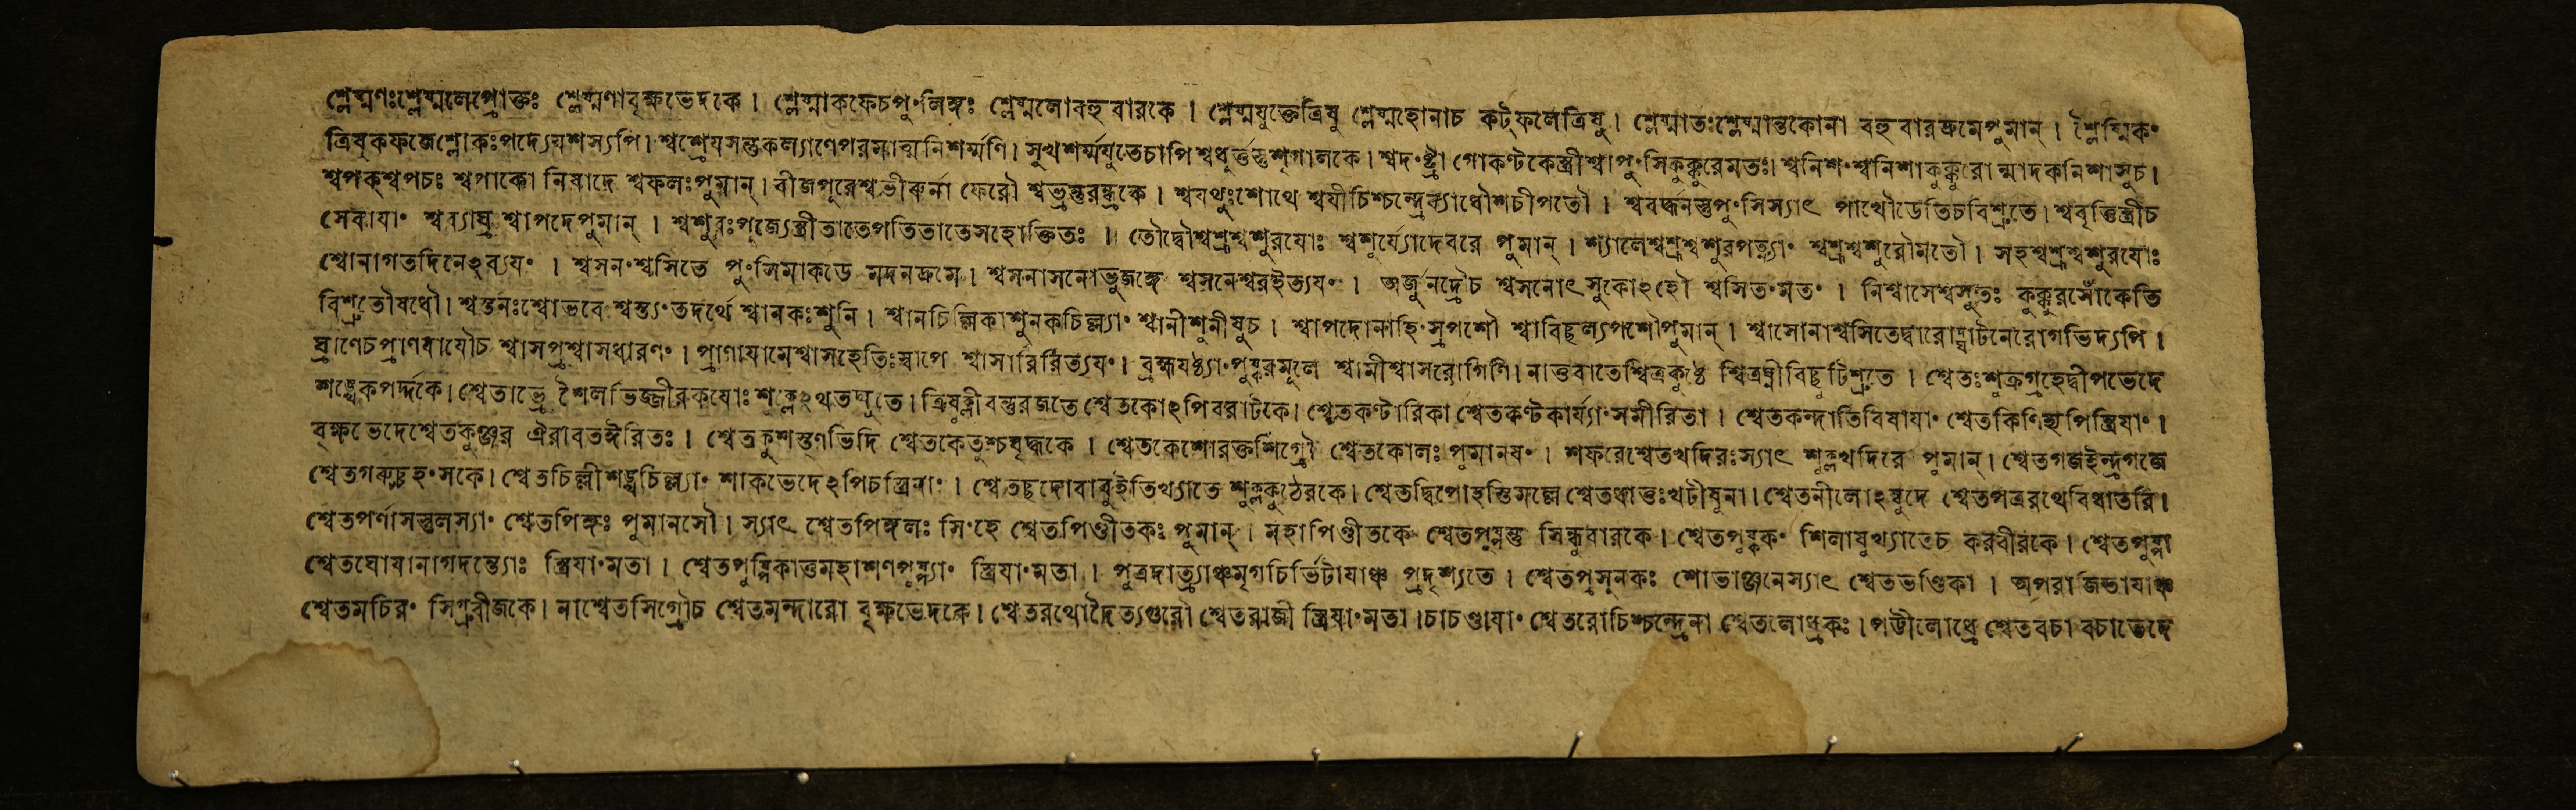 শ্লেষ্মণঃশ্লেষ্মলেপ্রোক্তঃ শ্লেষ্মণাবৃক্ষভেদকে। শ্লেষ্মাকফেচপুংলিঙ্গঃ শ্লেষ্মলোবহুবারকে। শ্লেষ্মযুক্তেত্রিষু শ্লেষ্মহোনাচ কট্ফলেত্রিষু। শ্লেষ্মাতঃশ্লেষ্মান্তকোনা বহুবারদ্রুমেপুমান্। শ্লৈষ্মিকং
ত্রিষুকফজেশ্লোকঃপদ্যেযশস্যপি। শ্বশ্রেযসন্তুকল্যাণেপরমাত্মনিশর্ম্মণি। সুখশর্ম্মযুতেচাপিশ্বধূর্ত্তস্তুশৃগালকে। শ্বদংষ্ট্রা গোকণ্টকেস্ত্রীশ্বাপুংসিকুক্কুরেমতঃ। শ্বনিশংশ্বনিশাকুক্কুরোন্মাদকনিশাসুচ।
শ্বপক্শ্বপচঃ শ্বপাকো নিষাদে শ্বফলঃপুমান্। বীজপুরেশ্বভীরুর্না ফেরৌ শ্বভ্রন্তুরন্ধ্রকে। শ্বযথুঃশোথে শ্বযীচিশ্চন্দ্রেব্যাধৌশচীপতৌ। শ্ববর্দ্ধনস্তুপুংসিস্যাৎ পাথৌডেতিচবিশ্রুতে। শ্ববৃত্তিস্ত্রীচ
সেবাযাং শ্বব্যাঘ্র শ্বাপদেপুমান্। শ্বশুরঃপূজ্যেস্ত্রীতাতেপতিতাতেসহোক্তিতঃ॥ তৌদ্বৌশ্বশ্রূশ্বশুরযোঃ শ্বশূর্য্যোদেবরে পুমান্। শ্যালেশ্বশ্রূশ্বশুরপত্ন্যাং শ্বশ্রূশ্বশুরৌমতৌ। সহশ্বশ্রূশ্বশুরযোঃ
শ্বোনাগতদিনেঽব্যযং। শ্বসনংশ্বসিতে পুংসিমারুতে মদনদ্রুমে। শ্বসনাসনোভুজঙ্গে শ্বসনেশ্বরইত্যযং। অর্জুনদ্রৌচ শ্বসনোৎসুকোঽহৌ শ্বসিতংমতং। নিশ্বাসেশ্বসুতঃ কুক্কুরসোঁকেতি
বিশ্রুতৌষধৌ। শ্বস্তনঃশ্বোভবে শ্বস্ত্যংতদর্থে শ্বানকঃশুনি। শ্বানচিল্লিকাশুনকচিল্ল্যাং শ্বানীশুনীষুচ। শ্বাপদোনাহিংস্রপশৌ শ্বাবিচ্ছল্যপশৌপুমান্। শ্বাসোনাশ্বসিতেদ্বারোদ্ঘাটনেরোগভিদ্যপি।
ঘ্রাণেচপ্রাণবাযৌচ শ্বাসপ্রশ্বাসধারণং। প্রাণাযামেশ্বাসহেতিঃস্বাপে শ্বাসারিরিত্যযং। ব্রহ্মযষ্ট্যাংপুষ্করমূলে শ্বাসীশ্বাসরোগিণি। নাত্তবাতেশ্বিত্রকুষ্ঠে শ্বিত্রঘ্নীবিছুটিশ্রুতে। শ্বেতঃশুক্রগ্রহেদ্বীপভেদে
শঙ্খেকপর্দ্দকে। শ্বেতাভ্রে শৈলভিজ্জীরকযোঃশুক্লেঽথতদ্যুতে। ত্রিষুক্লীবন্তুরজতে শ্বেতকোঽপিবরাটকে। শ্বেতকণ্টারিকা শ্বেতকণ্টকার্য্যাংসমীরিতা। শ্বেতকন্দাতিবিষাযাং শ্বেতকিণিহ্যপিস্ত্রিযাং।
বৃক্ষভেদেশ্বেতকুঞ্জর ঐরাবতঈরিতঃ। শ্বেতকুশস্তৃণভিদি শ্বেতকেতুশ্চবৃদ্ধকে। শ্বেতকেশোরক্তশিগ্রৌ শ্বেতকোলঃ পুমানযং। শফরেশ্বেতখদিরঃস্যাৎ শুক্লখদিরে পুমান্। শ্বেতগজইন্দ্রগজে
শ্বেতগরুচ্চহংসকে। শ্বেতচিল্লীশঙ্খচিল্ল্যাং শাকভেদেঽপিচস্ত্রিযাং। শ্বেতচ্ছদোবাবুইতিখ্যাতে শুক্লকুঠেরকে। শ্বেতদ্বিপোহস্তিমল্লে শ্বেতধাতুঃখটীষুনা। শ্বেতনীলোঽম্বুদে শ্বেতপত্ররথেবিধাতরি।
শ্বেতপর্ণাসস্তুলস্যাং শ্বেতপিঙ্গঃ পুমানসৌ। স্যাৎ শ্বেতপিঙ্গলঃ সিংহে শ্বেতপিণ্ডীতকঃ পুমান্। মহাপিণ্ডীতকে শ্বেতপুষ্পস্তু সিন্ধুবারকে। শ্বেতপুষ্পকং শিলাযুখ্যাতেচ করবীরকে। শ্বেতপুষ্পা
শ্বেতঘোষানাগদন্ত্যোঃ স্ত্রিযাংমতা। শ্বেতপুষ্পিকাত্তমহাশণপুষ্প্যাং স্ত্রিযাংমতা। পুত্রদাত্র্যাঞ্চমৃগচির্ভিটাযাঞ্চ প্রদৃশ্যতে। শ্বেতপ্রসূনকঃ শোভাঞ্জনেস্যাৎ শ্বেতভণ্ডিকা। অপরাজিতাযাঞ্চ
শ্বেতমচিরং সিগ্রুবীজকে। নাশ্বেতসিগ্রৌচ শ্বেতমন্দারো বৃক্ষভেদকে। শ্বেতরথোদৈত্যগুরৌ শ্বেতরাজী স্ত্রিযাংমতা। চাচণ্ডাযাং শ্বেতরোচিশ্চন্দ্রেনা শ্বেতলোধ্রকঃ। পট্টীলোধ্রে শ্বেতবচা বচাভেদে